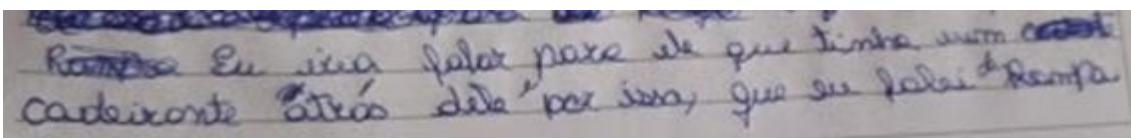 Eu iria falar para ele que tinha um
cadeirante atrás dele e por isso, que eu falei de Rampa